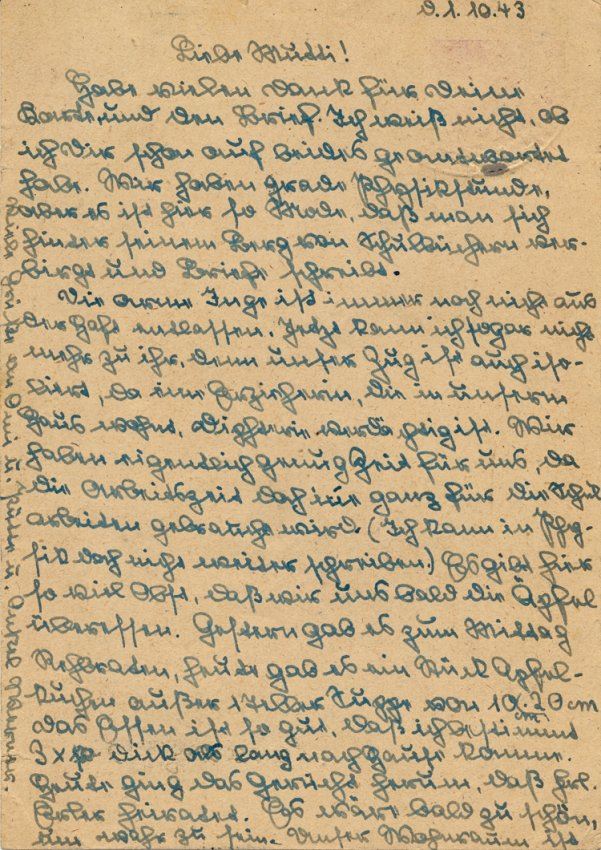 d. 1. 10. 43
Liebe Mutti!
Habe vielen Dank für Deine
Karte und den Brief. Ich weiß nicht, ob
ich Dir schon auf beides geantwortet
habe. Wir haben grade Physikstunde,
aber es ist hier so Mode, daß man sich
hinter seinem Berg von Schulbüchern ver-
birgt und Briefe schreibt.
Die arme Inge ist immer noch nicht aus
der Haft entlassen. Jetzt kann ich sogar nicht
mehr zu ihr, denn unser Zug ist auch iso-
liert, da eine Erzieherin, die in unserm
Haus wohnt, Diphterie verdächtig ist. Wir
haben eigentlich genug Zeit für uns, da
die Arbeitszeit doch nie ganz für die Schul
arbeiten gebraucht wird. (Ich kann in Phy-
sik doch nicht weiter schreiben.) Es gibt hier
so viel Obst, daß wir uns bald die Äpfel
überessen. Gestern gab es zum Mittag
Rehbraten, heute gab es ein Stück Apfel-
kuchen außer 1 Teller Suppe von 10 · 20 cm
das Essen ist so gut, daß ich bestimmt
3 x so dick als lang nach Hause komme.
Heute ging das Gerücht herum, daß Frl.
heiratet. Es wäre bald zu schön,
um wahr zu sein. Unser Wohnraum ist
Viele Grüße an Omi u. u. Onkel